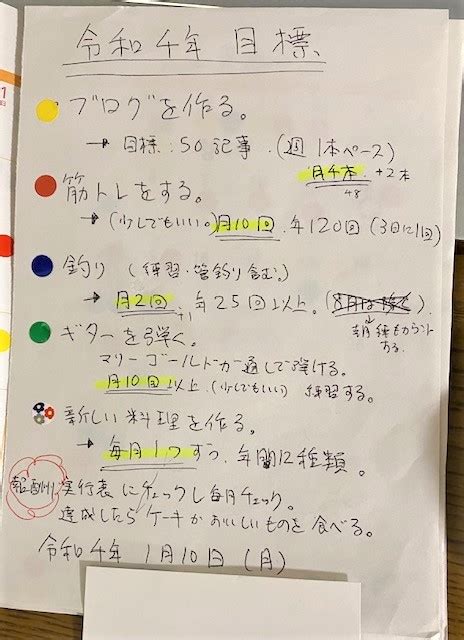 令和4年 目標
ブログを作る。
→ 目標:50記事.(週1本ペース)
月4本 +2本
48
筋トレをする。
→(少しでもいい。)月10回.年120回(3日に1回)
釣り (練習・管釣り含む。)
→ 月2回 +1 年25回以上.(8月は稼ぐ).
練もカウント
する.
ギターを弾く。
マリーゴールドが通しで弾ける.
月10回以上.(少しでもいい)練習する。
新しい料理を作る。
→ 毎月1つずつ.年間12種類。
報酬 実行表にチェックし毎月チェック。
達成したらケーキかおいしいものを食べる。
令和4年 1月10日(月)